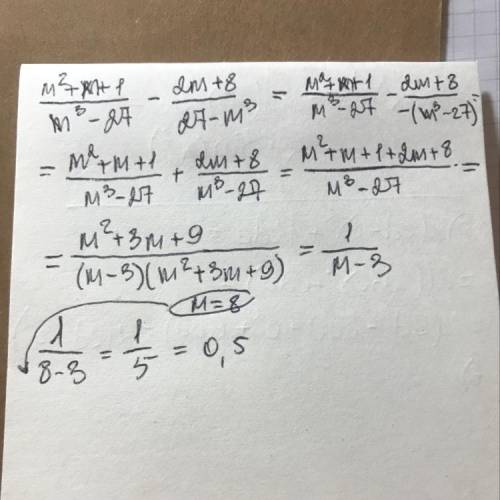 (m²+m+1)/(m³-27) - (2m+8)/(27-m³) = (m²+m+1)/(m³-27) - (2m+8)/(-(m³-27)) =
= (m²+m+1)/(m³-27) + (2m+8)/(m³-27) = (m²+m+1+2m+8)/(m³-27) =
= (m²+3m+9)/((m-3)(m²+3m+9)) = 1/(m-3)
m=8
1/(8-3) = 1/5 = 0,5